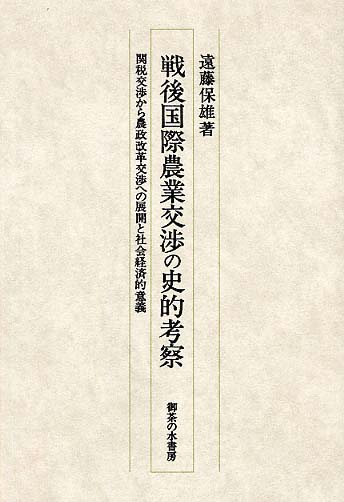 遠藤保雄著
戦後国際農業交渉の史的考察
関税交渉から農政改革交渉への展開と社会経済的意義
御茶の水書房